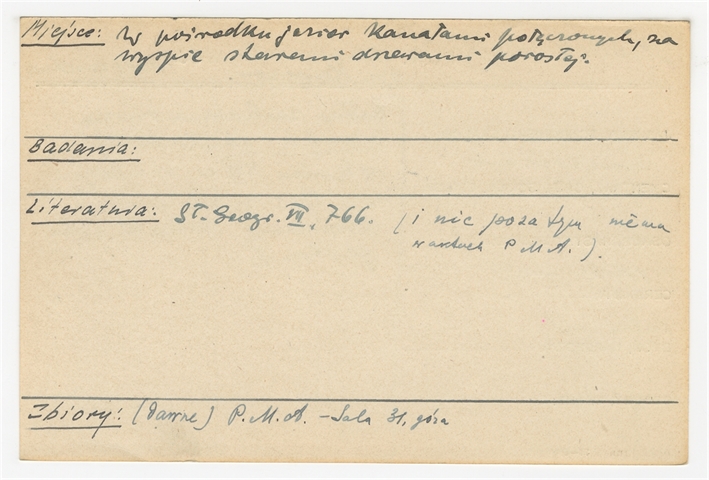 Miejsce: W pośrodku jezior kanałami połączonych, na
wyspie staremi drzewami porosłej.
Badania:
Literatura: Sł. Geogr. VII, 766. (i nic poza tym niema
w aktach P.M.A.).
Zbiory: (Dawne) P.M.A. - Sala 31, góra